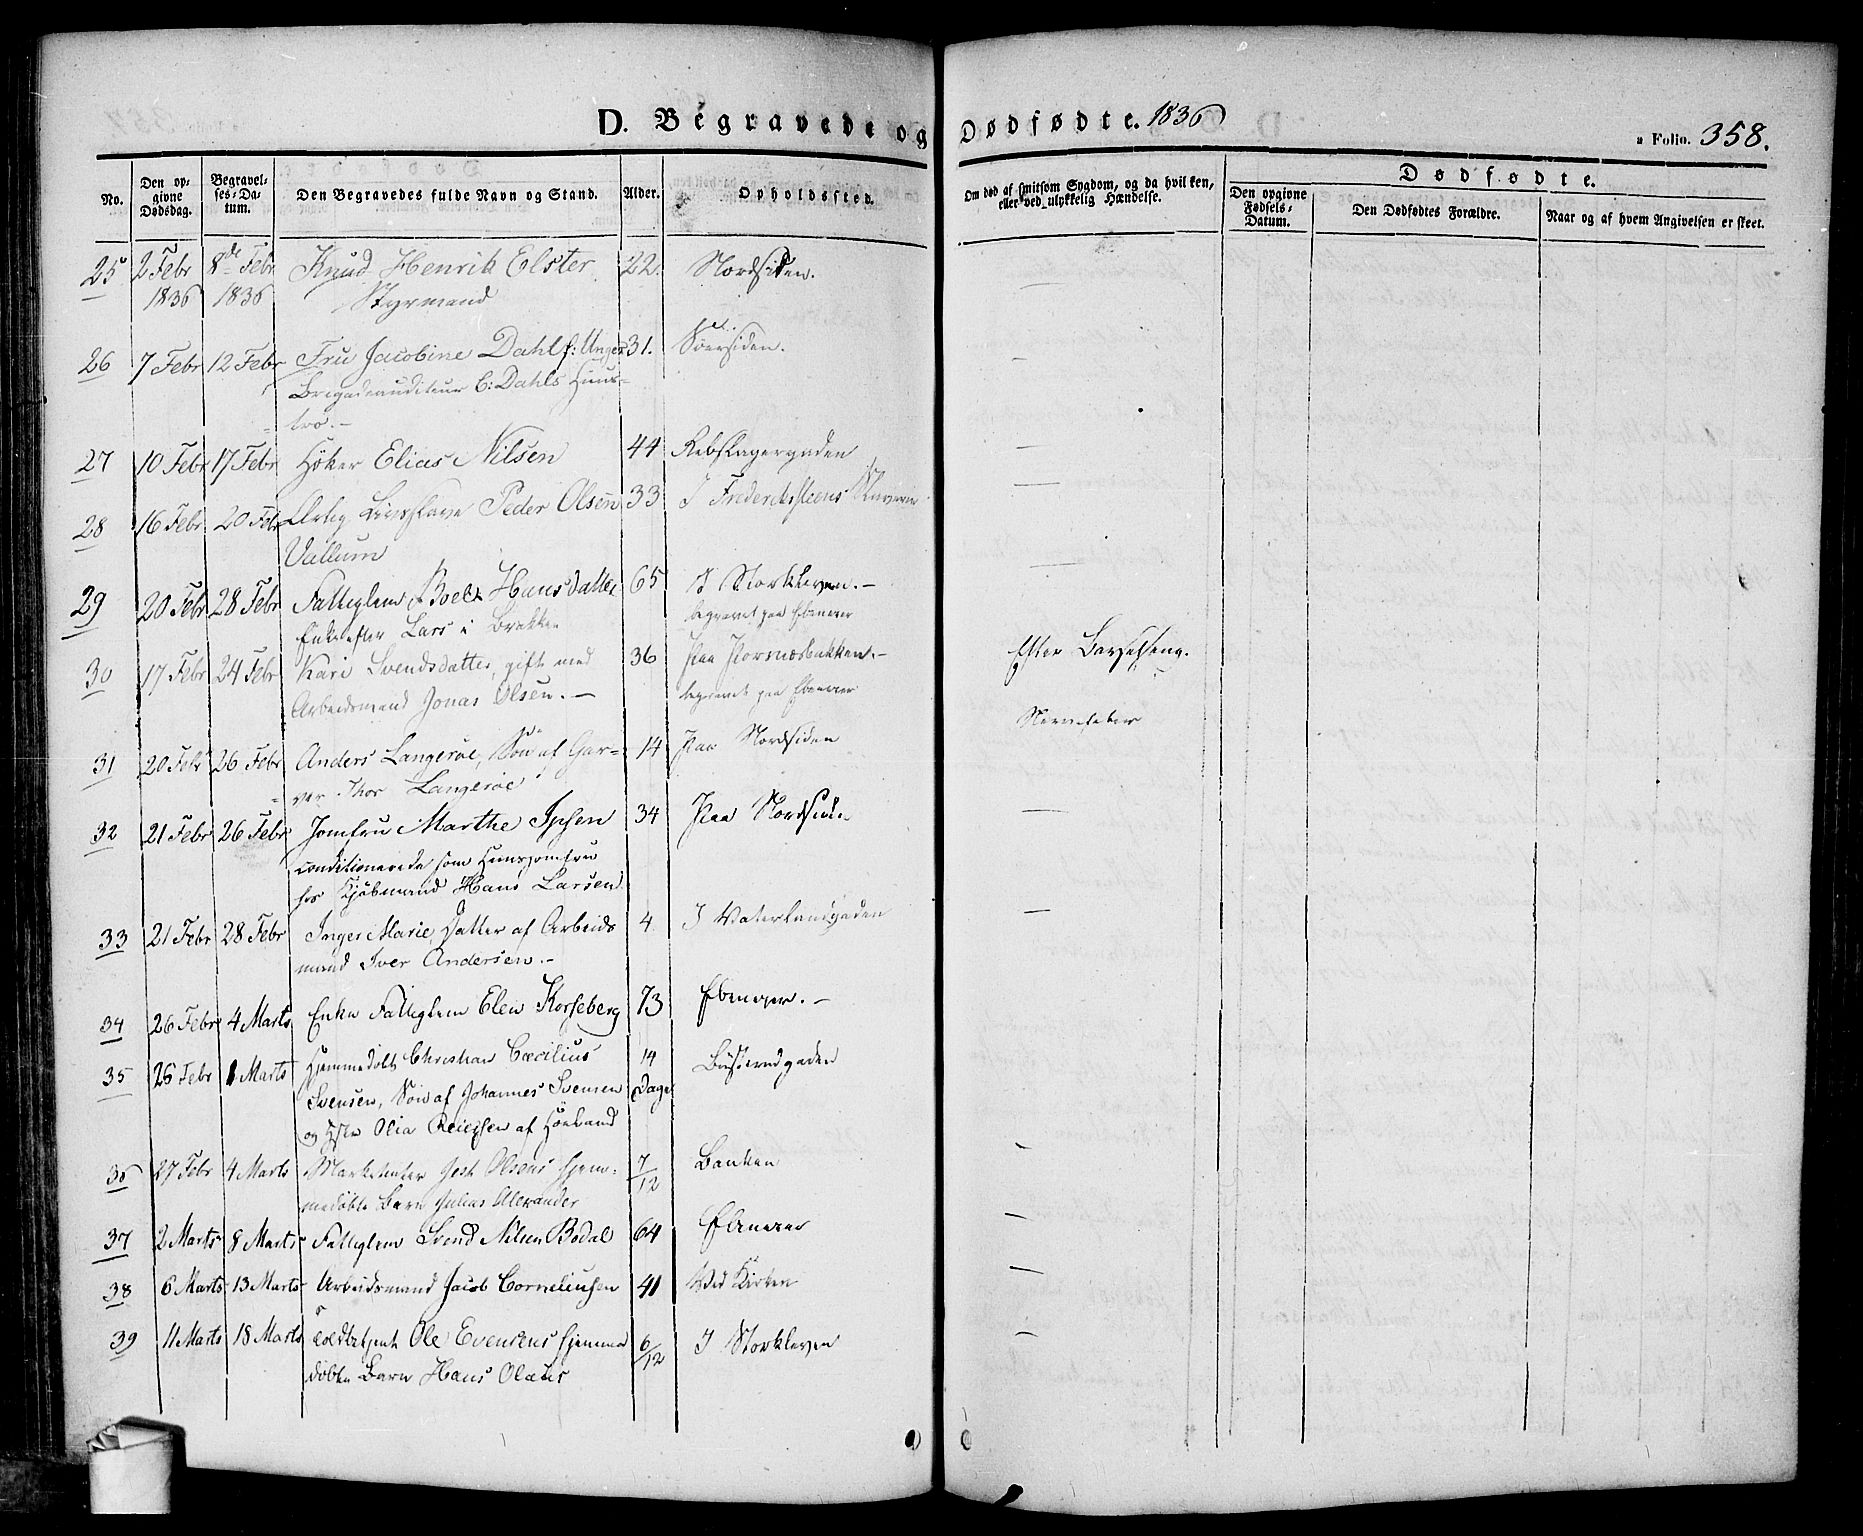 D. Begravede og Dødfødte. 1836
Folio. 358.
No.
Den opgivne Dødsdag.
Begravelses-Datum.
Den Begravedes fulde Navn og Stand.
Alder.
Opholdssted.
Om død af smitsom Sygdom, og da hvilken, eller ved ulykkelig Hændelse.
Dødfødte.
Den opgivne Fødsels-Datum.
Den Dødfødtes Forældre.
Naar og af hvem Angivelsen er skeet.
25 2 Febr 8de Febr Knud Henrik Elster 22. Nordsiden. —
1836 1836 Styrmand
26 7 Febr 12 Febr Fru Jacobine Dahl f: Unger 31. Søersiden. —
Brigadeauditeur C: Dahls Huus-
tro. -
27 10 Febr 17 Febr Höker Elias Nilsen 44 Rebslagergaden —
28 16 Febr 20 Febr Peder Olsen 33 I Frederikssteens Slaverie —
Vallum
29 20 Febr 28 Febr Fattiglem Boel Hansdatter 65 I Storkleven. - —
Enke efter Lars i Brekken begravet paa Ebenezer
30 17 Febr 24 Febr Kari Svendsdatter, gift med 36 Paa Porsnæsbakken. - Efter Barselseng.
Arbeidsmand Jonas Olsen. — begravet paa Ebenezer
31 20 Febr 26 Febr Anders Langeröe, Sön af Gar- 14 Paa Nordsiden Nervefeber
ver Thor Langeröe
32 21 Febr 26 Febr Jomfru Marthe Ipsen 34 Paa Nordsiden —
conditionerede som Huusjomfru
hos Kjöbmand Hans Larsen
33 21 Febr 28 Febr Inger Marie, Datter af Arbeids 4 I Vaterlandgaden —
mand Iver Andersen. -
34 26 Febr 4 Marts Enke Fattiglem Elen Korseberg 73 Ebenezer. -
35 26 Febr 1 Marts Hjemmedöbt Christian Cæcilius 14 Busterudgaden
Svensen, Sön af Johannes Svensen Dage
og Olia af
36 27 Febr 4 Marts Marketenter Olsens hjem- 7/12 Banken —
medöbte Barn Julius Alexander
37 2 Marts 8 Marts Fattiglem Svend Nilsen Bodal 64 Ebenezer —
38 6 Marts 13 Marts Arbeidsmand Jacob Corneliusen 41 Ved Kirken —
39 11 Marts 18 Marts Ole Evensens hjemme 6/12 I Storkleven —
döbte Barn Hans Olaus